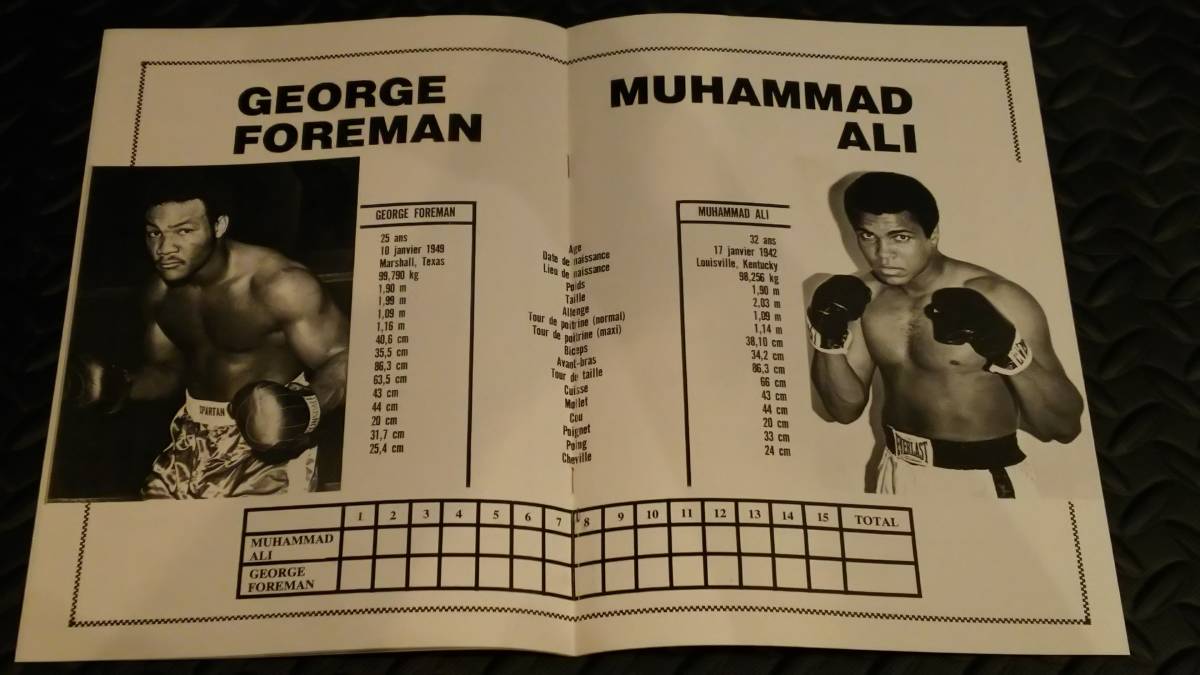 GEORGE
FOREMAN
MUHAMMAD
ALI
GEORGE FOREMAN
25 ans
10 janvier 1949
Marshall, Texas
99,790 kg
1,90 m
1,99 m
1,09 m
1,16 m
40,6 cm
35,5 cm
86,3 cm
63,5 cm
43 cm
44 cm
20 cm
31,7 cm
25,4 cm
Age
Date de naissance
Lieu de naissance
Poids
Taille
Allonge
Tour de poitrine (normal)
Tour de poitrine (maxi)
Biceps
Avant-bras
Tour de taille
Cuisse
Mollet
Cou
Poignet
Poing
Cheville
MUHAMMAD ALI
32 ans
17 janvier 1942
Louisville, Kentucky
98,256 kg
1,90 m
2,03 m
1,09 m
1,14 m
38,10 cm
34,2 cm
86,3 cm
66 cm
43 cm
44 cm
20 cm
33 cm
24 cm
SPARTAN
EVERLAST
1 2 3 4 5 6 7 8 9 10 11 12 13 14 15 TOTAL
MUHAMMAD
ALI
GEORGE
FOREMAN